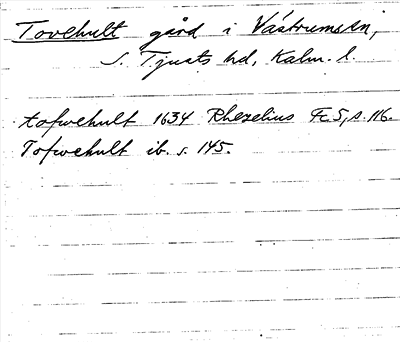 Tovehult gård i Västrums sn,
S. Tjusts hd, Kalm. l.
tofwehult 1634 Rhezelius Fc5, s. 116.
Tofwehult ib. s. 145.